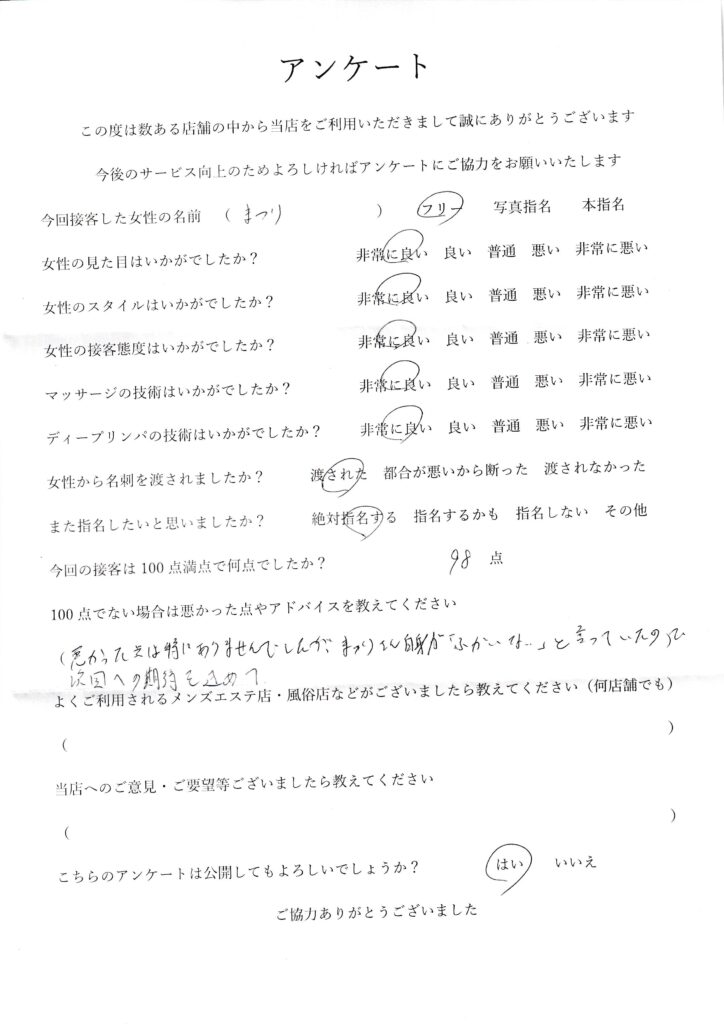 アンケート
この度は数ある店舗の中から当店をご利用いただきまして誠にありがとうございます
今後のサービス向上のためよろしければアンケートにご協力をお願いいたします
今回接客した女性の名前 ( まつり ) フリー 写真指名 本指名
女性の見た目はいかがでしたか? 非常に良い 良い 普通 悪い 非常に悪い
女性のスタイルはいかがでしたか? 非常に良い 良い 普通 悪い 非常に悪い
女性の接客態度はいかがでしたか? 非常に良い 良い 普通 悪い 非常に悪い
マッサージの技術はいかがでしたか? 非常に良い 良い 普通 悪い 非常に悪い
ディープリンパの技術はいかがでしたか? 非常に良い 良い 普通 悪い 非常に悪い
女性から名刺を渡されましたか? 渡された 都合が悪いから断った 渡されなかった
また指名したいと思いましたか? 絶対指名する 指名するかも 指名しない その他
今回の接客は100点満点で何点でしたか? 98 点
100点でない場合は悪かった点やアドバイスを教えてください
(悪かった点は特にありませんでしたが、まつりさん自身が「ふかいな..」と言っていたので
次回への期待を込めて
よくご利用されるメンズエステ店・風俗店などがございましたら教えてください(何店舗でも)
( )
当店へのご意見・ご要望等ございましたら教えてください
( )
こちらのアンケートは公開してもよろしいでしょうか? はい いいえ
ご協力ありがとうございました